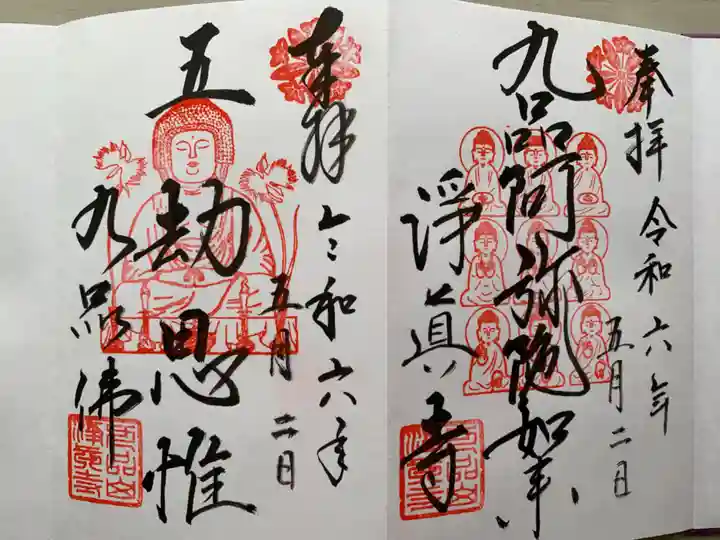 奉拝 令和六年
五月二日
九品阿弥陀如来
淨真寺
奉拝
令和六年
五月二日
五劫思惟
九品佛